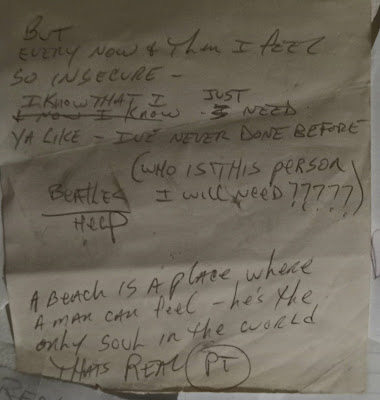 BUT
EVERY NOW & Then I FEEL
SO INSECURE -
I KNOW THAT I JUST
I NOW I KNOW - NEED
YA LIKE - I'VE NEVER DONE BEFORE
(WHO IS THIS PERSON
BEATLES I WILL NEED?????)
HELP
A BEACH IS A PLACE WHERE
A MAN CAN FEEL - he's THE
ONLY SOUL IN THE WORLD
THATS REAL PT